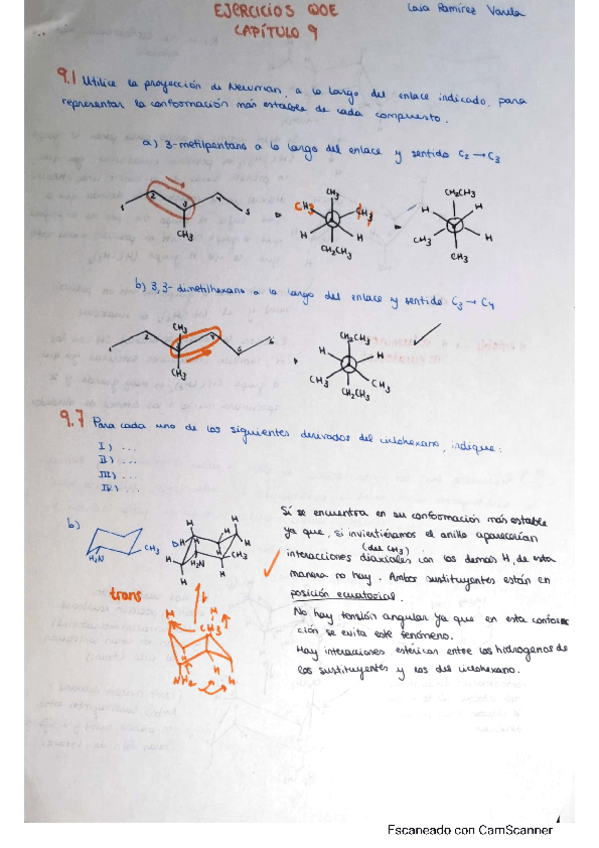 EJERCICIOS QOE
CAPÍTULO 9
Laia Ramírez Varela
9.1 Utilice la proyección de Newman, a lo largo del enlace indicado, para
representar la conformación más estable de cada compuesto.
a) 3-metilpentano a lo largo del enlace y sentido C2→C3
1 2 3 4 5
CH3
CH3
CH3 CH3
H H
CH2CH3
CH2CH3
H H
CH3 H
CH3
b) 3,3-dimetilhexano a lo largo del enlace y sentido C3→C4
CH3
1 2 5 6
CH3
CH2CH3
H H
CH3 CH3
CH2CH3
9.7 Para cada uno de los siguientes derivados del ciclohexano, indique:
I) ...
II) ...
III) ...
IV) ...
b)
H2N CH3
H H H H
H H2N CH3
H H
trans
H H
CH3
H
NH2 H
Sí se encuentra en su conformación más estable
ya que, si invirtiéramos el anillo aparecerían
(del CH3)
interacciones diaxiales con los demás H, de esta
manera no hay. Ambos sustituyentes están en
posición ecuatorial.
No hay tensión angular ya que en esta confor
ción se evita este fenómeno.
Hay interacciones estéricas entre los hidrógenos de
los sustituyentes y los del ciclohexano.
Escaneado con CamScanner